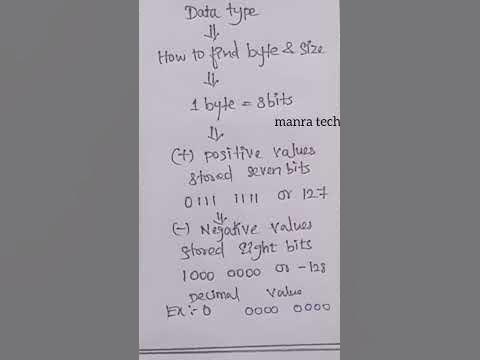 Data type
⇓
How to find byte & Size
⇓
1 byte = 8bits
manra tech
⇓
(+) Positive values
Stored seven bits
0111 1111 or 127
⇓
(-) Negative values
Stored Eight bits
1000 0000 or -128
Decimal Value
Ex:- 0 0000 0000